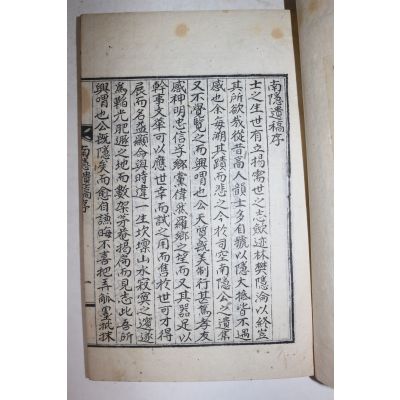 南隱遺稿序
士之生世有立揚需世之志斂迹林樊隱淪以終豈
其所欲哉從昔高人韻士多自號以隱大抵皆不遇
感也余每溯其蹟而悲之今於司空南隱公之遺集
又不覺覽之而興喟也公天質甚美制行甚篤孝友
感神明忠信孚鄉黨偉然羅鄉之望而又其器足以
幹事文華可以應世幸而試之用而售於世可才得
展而名益顯命與時違一生坎壈山水寂寞之濱遂
爲韜光肥遯之地而數架茅菴揭扁而見志此吾所
興喟也公旣隱矣而愈自謙晦不喜把弄觚墨抵抹
南隱遺稿序